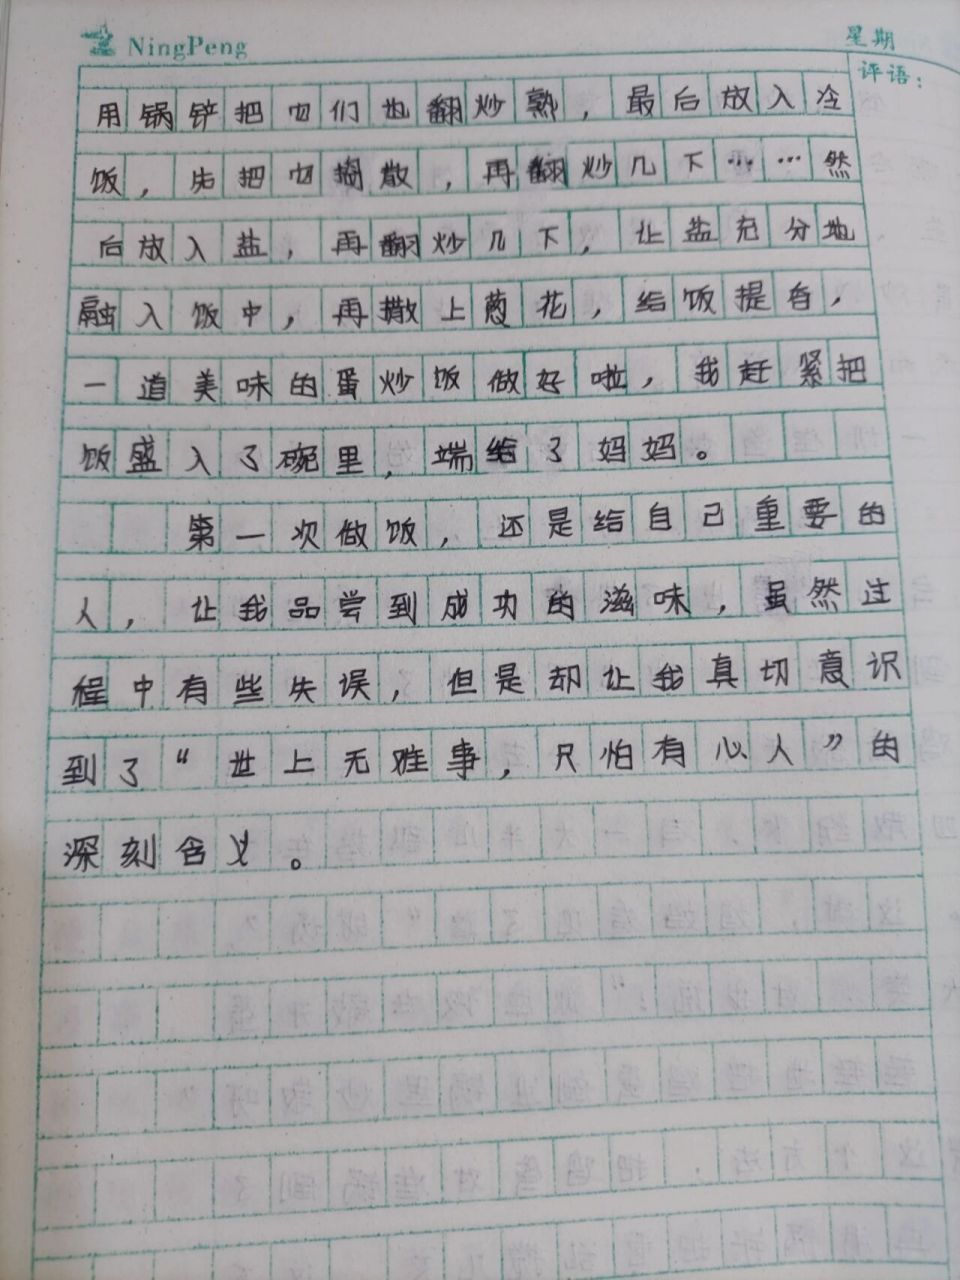 NingPeng
星期
评语：
用锅铲把它们也翻炒熟，最后放入冷
饭，先把它捣散，再翻炒几下……然
后放入盐，再翻炒几下，让盐充分地
融入饭中，再撒上葱花，给饭提香，
一道美味的蛋炒饭做好啦，我赶紧把
饭盛入了碗里，端给了妈妈。
第一次做饭，还是给自己重要的
人，让我品尝到成功的滋味，虽然过
程中有些失误，但是却让我真切意识
到了“世上无难事，只怕有心人”的
深刻含义。